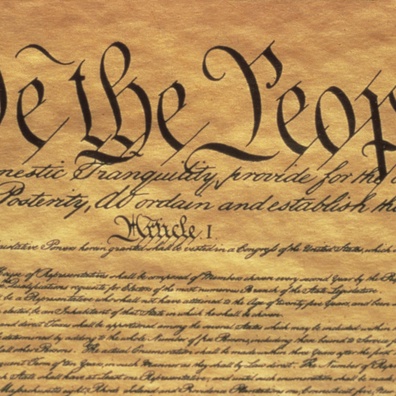 We the Peop
mestic Tranquility, provide for the
Posterity, do ordain and establish thi
Article I
Powers herein granted shall be vested in a Congress of the United States, which
House of Representatives shall be composed of Members chosen every second Year by the Pe
Qualifications requisite for Electors of the most numerous Branch of the State Legislature
be a Representative who shall not have attained to the Age of twenty five Years, and been
elected, be an Inhabitant of that State in which he shall be chosen.
and direct Taxes shall be apportioned among the several States which may be included within
determined by adding to the whole Number of free Persons, including those bound to Service
all other Persons. The actual Enumeration shall be made within three Years after the first
Term of ten Years, in such Manner as they shall by Law direct. The Number of Repres
State shall have at Least one Representative; and until such enumeration shall be made
Massachusetts eight, Rhode Island and Providence Plantations one, Connecticut five, New